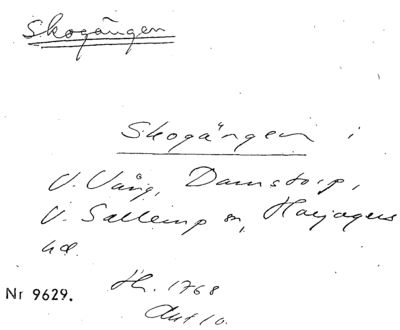 Skogängen
Skogängen i
V. Vång, Damstorp,
V. Sallerup sn, Harjagers
hd.
Nr 9629.
H. 1768
Akt 10.